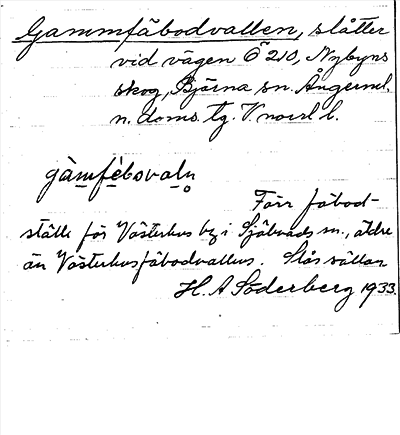 Gammfäbodvallen, slåtter
vid vägen Ö 210, Nybyns
skog, Björna sn. Ångerml.
n. doms. tg. V. norrl l.
gàmfèbsvaln̥
Förr fäbod-
ställe för Västerhus by i Själevads sn., äldre
än Västerhusfäbodvallen. Slås sällan
H. A Söderberg 1933.